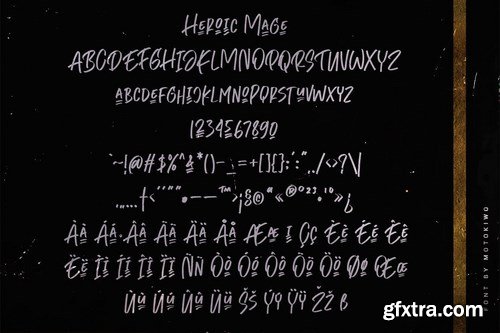 Heroic Mage
ABCDEFGHIJKLMNOPQRSTUVWXYZ
ABCDEFGHIJKLMNOPQRSTUVWXYZ
1234567890
`~!@#$%^&*()-_=+[]{};:'",./<>?\|
Àà Áá Ââ Ãã Ää Åå Ææ I Çç Èè Éé Êê
Ëë Ìì Íí Îî Ïï Ññ Òò Óó Ôô Õõ Öö Øø Œœ
Ùù Úú Ûû Üü Šš Ýý Ÿÿ Žž ß
FONT BY MOTOKIWO
gfxtra.com